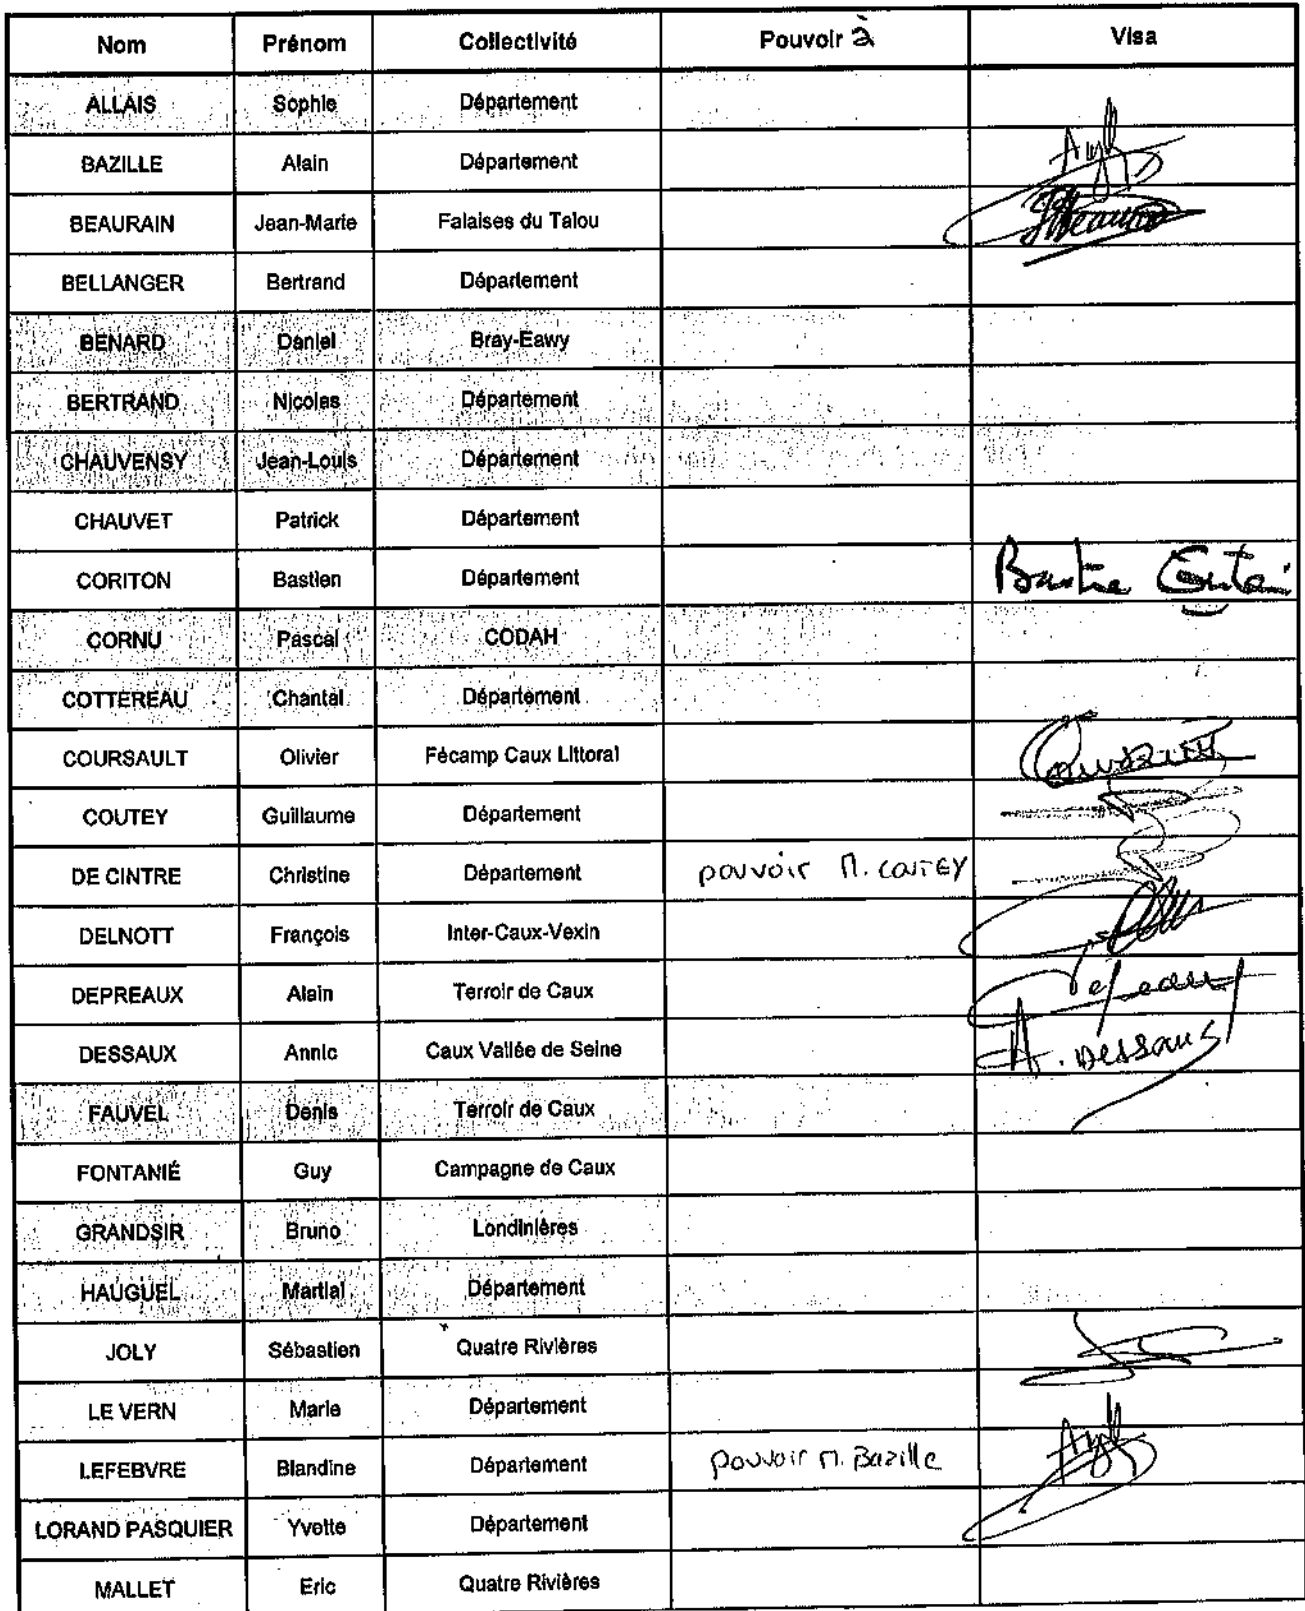 Nom Prénom Collectivité Pouvoir à Visa
ALLAIS Sophie Département
BAZILLE Alain Département
BEAURAIN Jean-Marie Falaises du Talou
BELLANGER Bertrand Département
BENARD Daniel Bray-Eawy
BERTRAND Nicolas Département
CHAUVENSY Jean-Louis Département
CHAUVET Patrick Département
CORITON Bastien Département
CORNU Pascal CODAH
COTTEREAU Chantal Département
COURSAULT Olivier Fécamp Caux Littoral
COUTEY Guillaume Département
DE CINTRE Christine Département pouvoir M. COUTEY
DELNOTT François Inter-Caux-Vexin
DEPREAUX Alain Terroir de Caux
DESSAUX Annic Caux Vallée de Seine A. Dessaux
FAUVEL Denis Terroir de Caux
FONTANIÉ Guy Campagne de Caux
GRANDSIR Bruno Londinières
HAUGUEL Martial Département
JOLY Sébastien Quatre Rivières
LE VERN Marie Département
LEFEBVRE Blandine Département pouvoir M. Bazille
LORAND PASQUIER Yvette Département
MALLET Eric Quatre Rivières